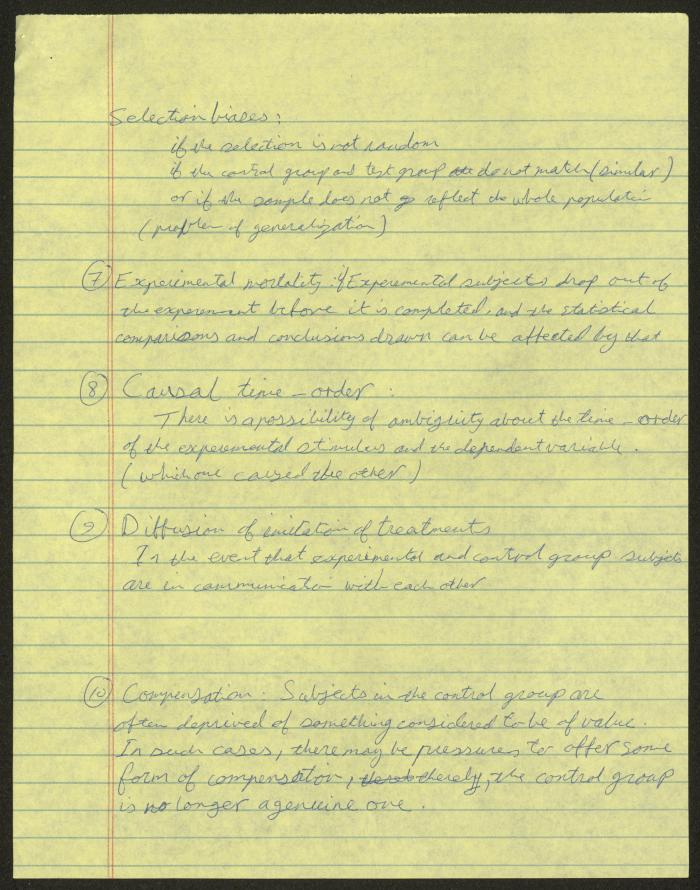 Selection biases:
if the selection is not random
if the control group and test group do not match (similar)
or if the sample does not reflect the whole population
(problem of generalization)
⑦ Experimental mortality: if Experimental subjects drop out of
the experiment before it is completed, and the statistical
comparisons and conclusions drawn can be affected by that
⑧ Causal time-order:
There is a possibility of ambiguity about the time-order
of the experimental stimulus and the dependent variable.
(which one caused the other)
⑨ Diffusion of imitation of treatments
In the event that experimental and control group subjects
are in communication with each other
⑩ Compensation: Subjects in the control group are
often deprived of something considered to be of value.
In such cases, there may be pressures to offer some
form of compensation, thereby, the control group
is no longer a genuine one.